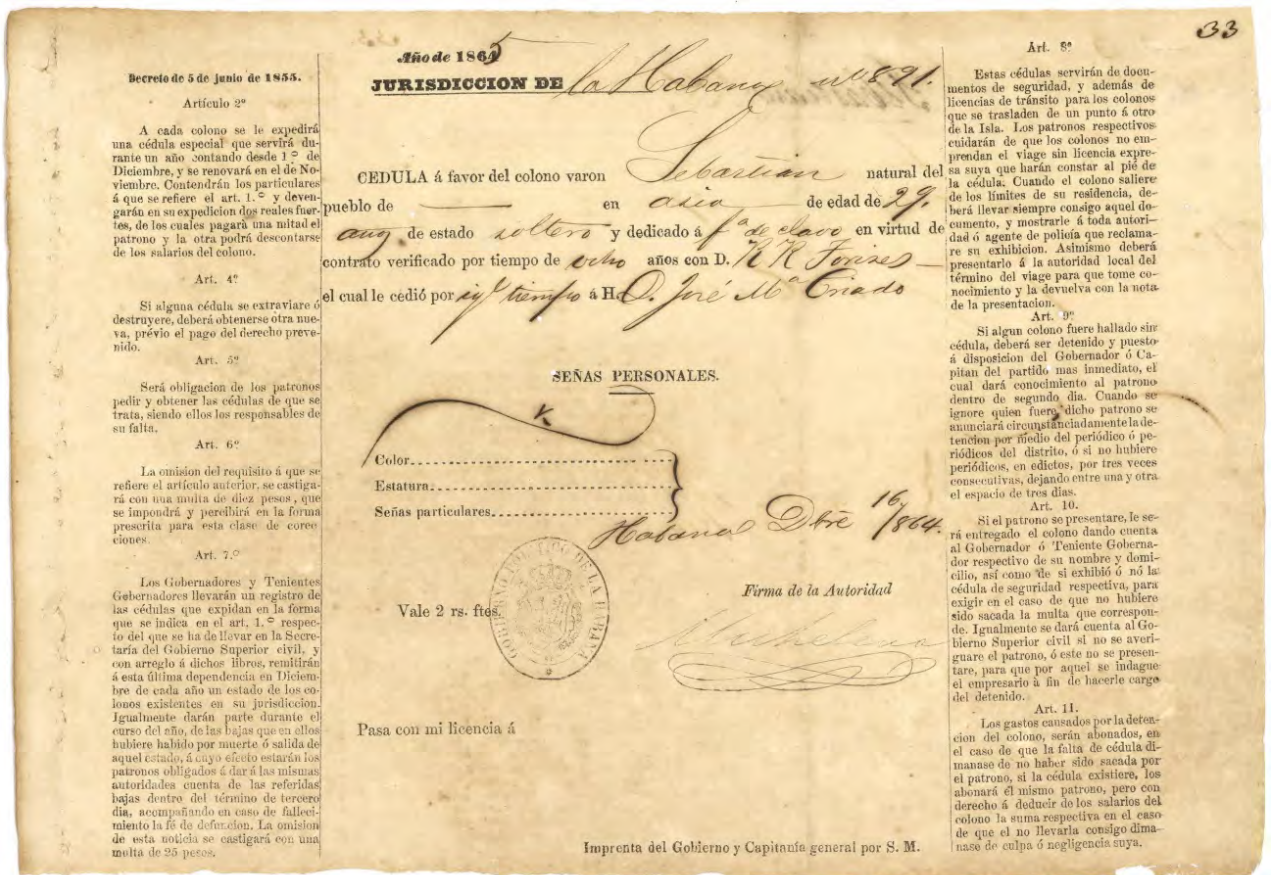 33
Decreto de 5 de junio de 1855.
Artículo 2º
A cada colono se le expedirá
una cédula especial que servirá du-
rante un año contando desde 1.º de
Diciembre, y se renovará en el de No-
viembre. Contendrán los particulares
á que se refiere el art. 1.º y deven-
garán en su expedicion dos reales fuer-
tes, de los cuales pagará una mitad el
patrono y la otra podrá descontarse
de los salarios del colono.
Art. 4º
Si alguna cédula se extraviare ó
destruyere, deberá obtenerse otra nue-
va, prévio el pago del derecho preve-
nido.
Art. 5º
Será obligacion de los patronos
pedir y obtener las cédulas de que se
trata, siendo ellos los responsables de
su falta.
Art. 6º
La omision del requisito á que se
refiere el artículo anterior, se castiga-
rá con una multa de diez pesos, que
se impondrá y percibirá en la forma
prescrita para esta clase de corec
ciones.
Art. 7.º
Los Gobernadores y Tenientes
Gobernadores llevarán un registro de
las cédulas que expidan en la forma
que se indica en el art. 1.º respec-
to del que se ha de llevar en la Secre-
taría del Gobierno Superior civil, y
con arreglo á dichos libros, remitirán
á esta última dependencia en Diciem-
bre de cada año un estado de los co-
lonos existentes en su jurisdiccion.
Igualmente darán parte durante el
curso del año, de las bajas que en ellos
hubiere habido por muerte ó salida de
aquel estado, á cuyo efecto estarán los
patronos obligados á dar á las mismas
autoridades cuenta de las referidas
bajas dentro del término de tercero
dia, acompañando en caso de falleci-
miento la fé de defuncion. La omision
de esta noticia se castigará con una
multa de 25 pesos.
Año de 1865
JURISDICCION DE la Habana nº 891.
CEDULA á favor del colono varon Sebastian natural del
pueblo de en asia de edad de 29.
de estado soltero y dedicado á fª de clavo en virtud de
contrato verificado por tiempo de ocho años con D. R R
el cual le cedió por igl tiempo á H. D. José Mª Criado
SEÑAS PERSONALES.
Color
Estatura
Señas particulares
Habana Dbre 16/864.
Firma de la Autoridad
Vale 2 rs. ftes.
GOBIERNO POLITICO DE LA HABANA
Pasa con mi licencia á
Imprenta del Gobierno y Capitanía general por S. M.
Art. 8º
Estas cédulas servirán de docu-
mentos de seguridad, y además de
licencias de tránsito para los colonos
que se trasladen de un punto á otro
de la Isla. Los patronos respectivos
cuidarán de que los colonos no em-
prendan el viage sin licencia expre-
sa suya que harán constar al pié de
la cédula. Cuando el colono saliere
de los límites de su residencia, de-
berá llevar siempre consigo aquel do-
cumento, y mostrarle á toda autori-
dad ó agente de policía que reclama-
re su exhibicion. Asimismo deberá
presentarlo á la autoridad local del
término del viage para que tome co-
nocimiento y la devuelva con la nota
de la presentacion.
Art. 9º
Si algun colono fuere hallado sin
cédula, deberá ser detenido y puesto
á disposicion del Gobernador ó Ca-
pitan del partido mas inmediato, el
cual dará conocimiento al patrono
dentro de segundo dia. Cuando se
ignore quien fuere dicho patrono se
anunciará circunstanciadamente la de-
tencion por medio del periódico ó pe-
riódicos del distrito, ó si no hubiere
periódicos, en edictos, por tres veces
consecutivas, dejando entre una y otra
el espacio de tres dias.
Art. 10.
Si el patrono se presentare, le se-
rá entregado el colono dando cuenta
al Gobernador ó Teniente Goberna-
dor respectivo de su nombre y domi-
cilio, así como de si exhibió ó nó la
cédula de seguridad respectiva, para
exigir en el caso de que no hubiere
sido sacada la multa que correspon-
de. Igualmente se dará cuenta al Go-
bierno Superior civil si no se averi-
guare el patrono, ó este no se presen-
tare, para que por aquel se indague
el empresario à fin de hacerle cargo
del detenido.
Art. 11.
Los gastos causados por la deten-
cion del colono, serán abonados, en
el caso de que la falta de cédula di-
manase de no haber sido sacada por
el patrono, si la cédula existiere, los
abonará él mismo patrono, pero con
derecho á deducir de los salarios del
colono la suma respectiva en el caso
de que el no llevarla consigo dima-
nase de culpa ó negligencia suya.